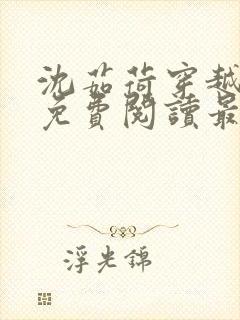 沈茹荷穿越
免費閱讀最
浮光錦